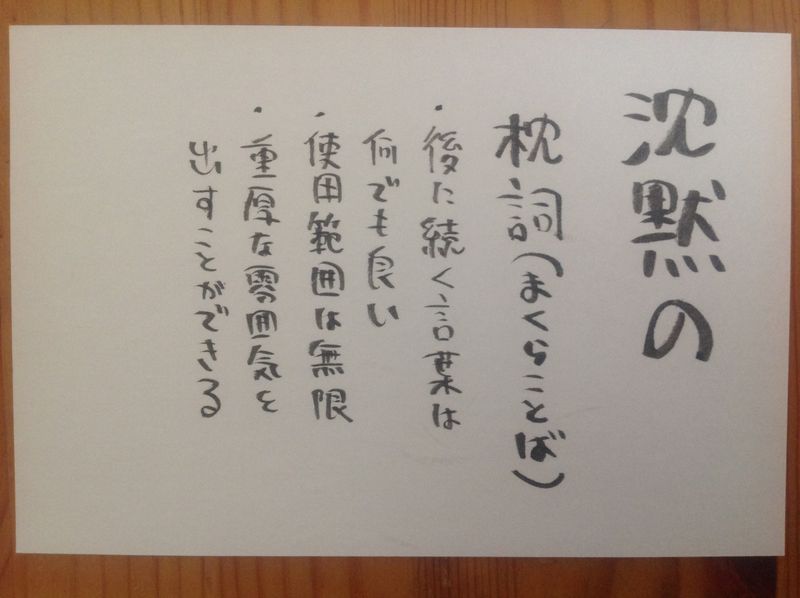 沈黙の
枕詞(まくらことば)
・後に続く言葉は
何でも良い
・使用範囲は無限
・重厚な雰囲気を
出すことができる